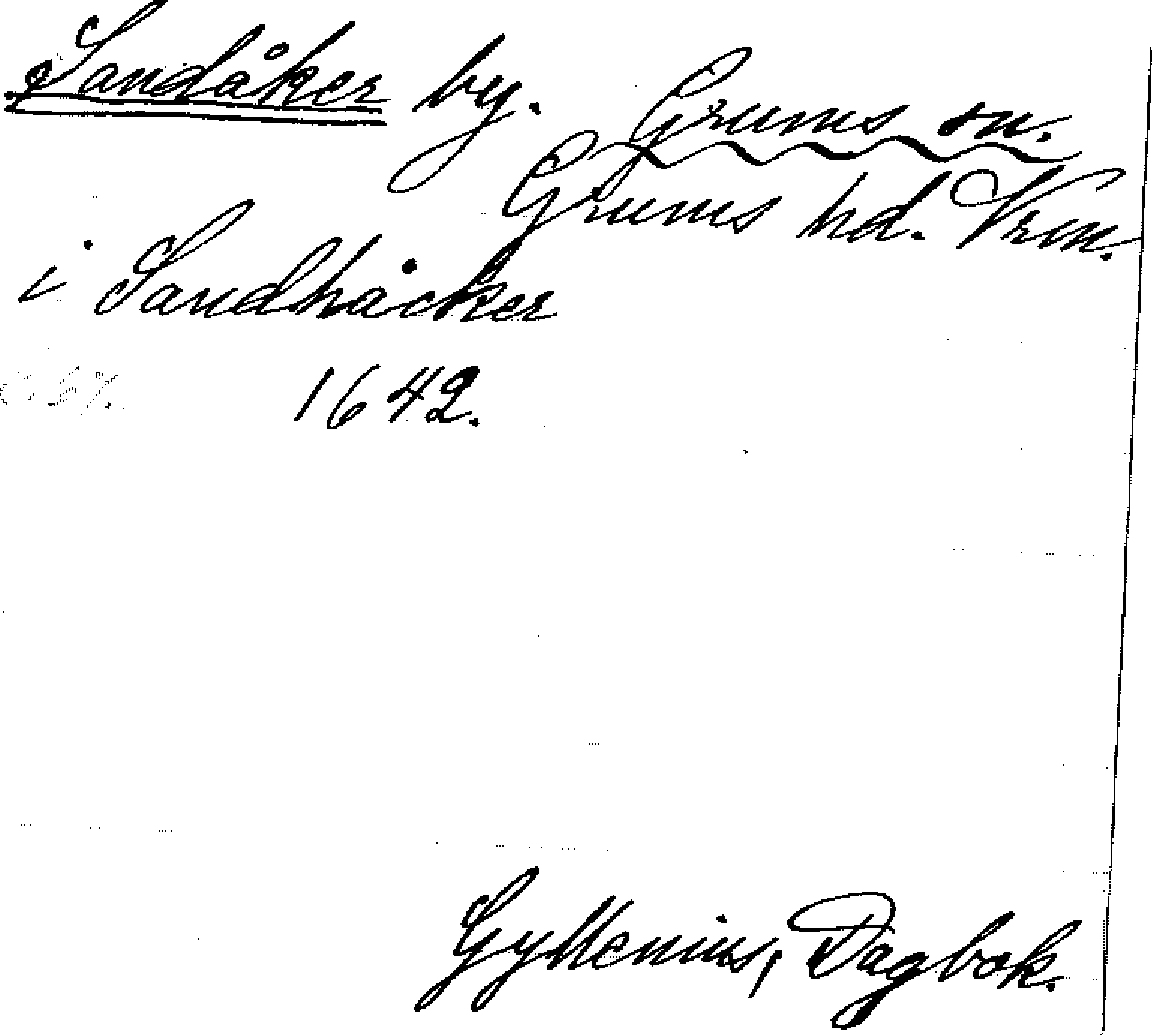 Sandåker by. Grums sn.
Grums hd. Vrm.
i Sandhåcker
1642.
Gyllenius, Dagbok.